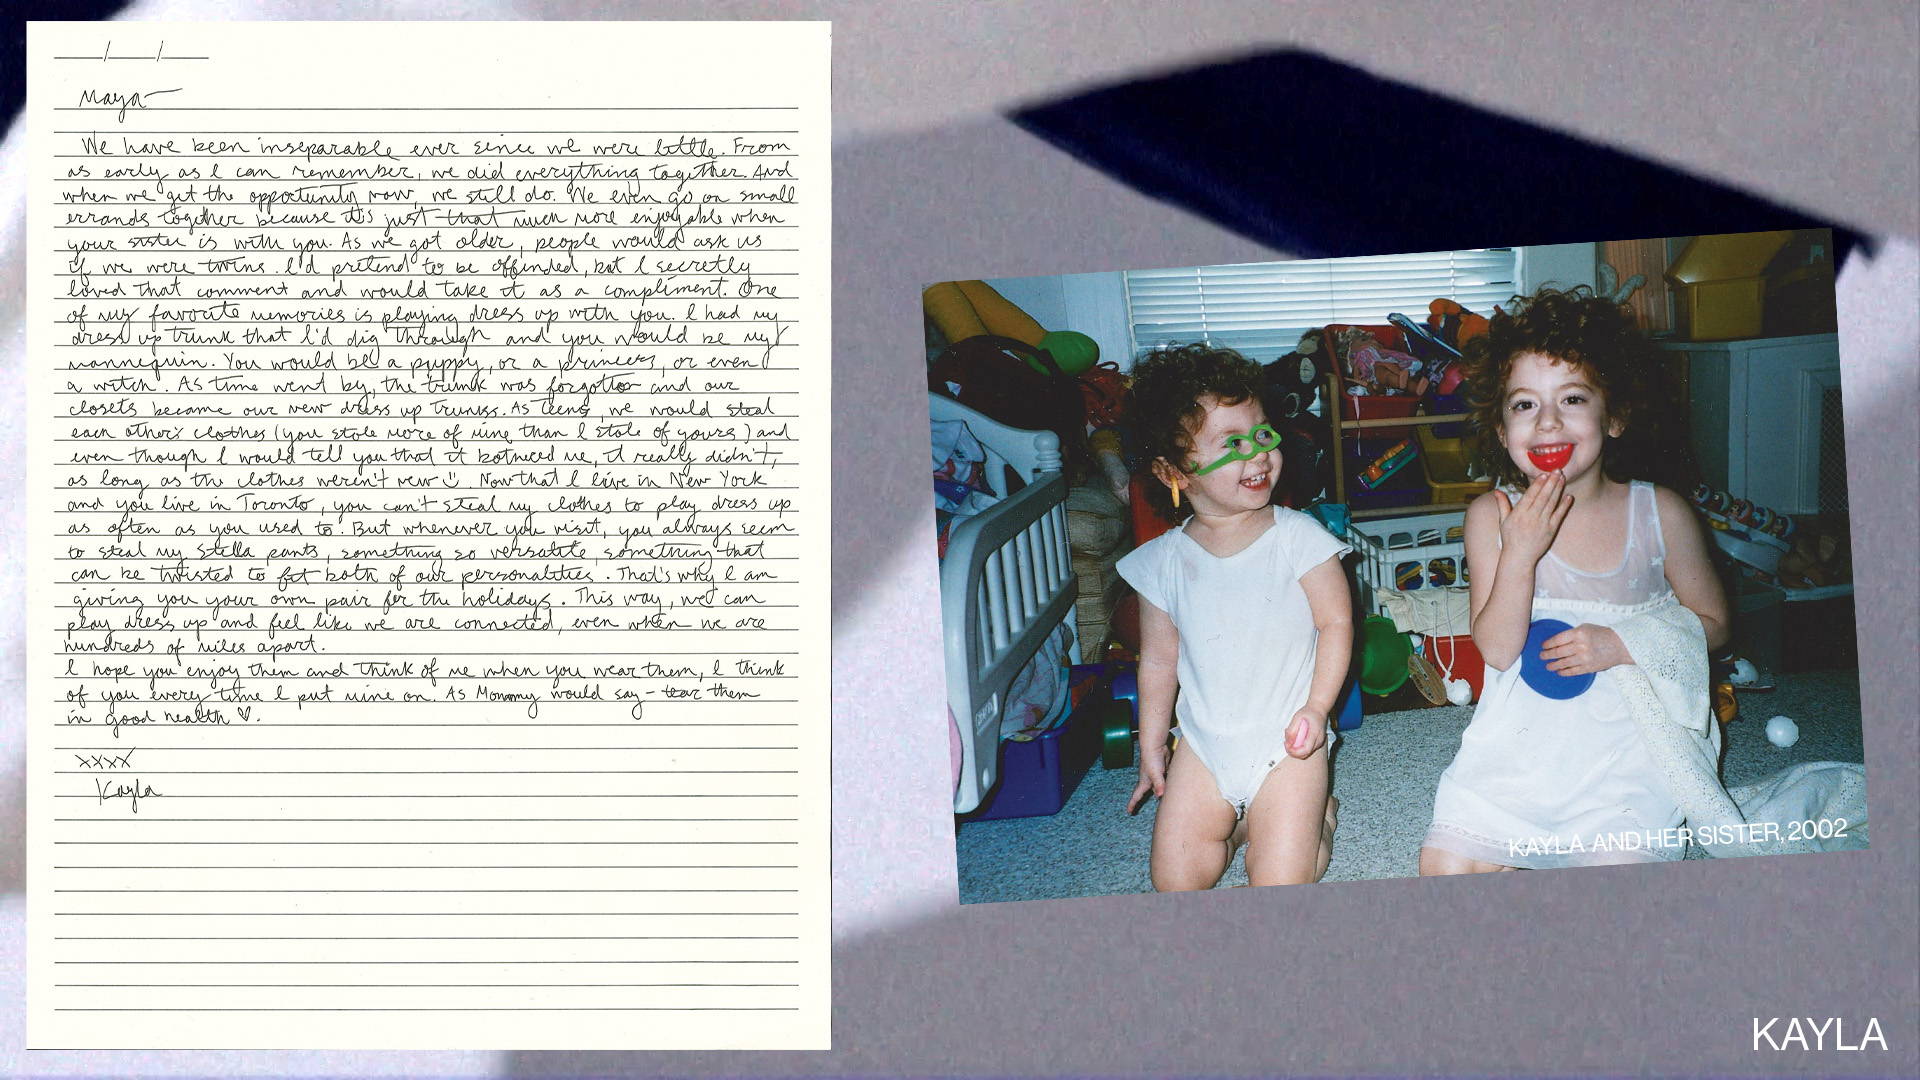 ___/___/___
Maya—
We have been inseparable ever since we were little. From
as early as I can remember, we did everything together. And
when we get the opportunity now, we still do. We even go on small
errands together because it's just that much more enjoyable when
your sister is with you. As we got older, people would ask us
if we were twins. I'd pretend to be offended, but I secretly
loved that comment and would take it as a compliment. One
of my favorite memories is playing dress up with you. I had my
dress up trunk that I'd dig through and you would be my
mannequin. You would be a puppy, or a princess, or even
a witch. As time went by, the trunk was forgotten and our
closets became our new dress up trunks. As teens, we would steal
each other's clothes (you stole more of mine than I stole of yours) and
even though I would tell you that it bothered me, it really didn't,
as long as the clothes weren't new ☺. Now that I live in New York
and you live in Toronto, you can't steal my clothes to play dress up
as often as you used to. But whenever you visit, you always seem
to steal my Stella pants, something so versatile, something that
can be twisted to fit both of our personalities. That's why I am
giving you your own pair for the holidays. This way, we can
play dress up and feel like we are connected, even when we are
hundreds of miles apart.
I hope you enjoy them and think of me when you wear them, I think
of you every time I put mine on. As Mommy would say – tear them
in good health ♡.
xxxx
Kayla
KAYLA AND HER SISTER, 2002
KAYLA